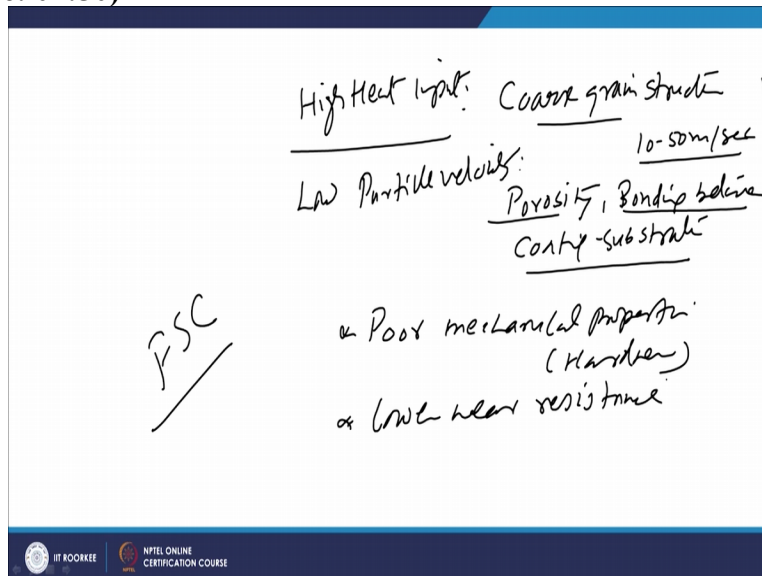 High Heat Input: Coarse grain structu
10-50m/sec
Low Particle velocity:
Porosity, Bonding between
Coating-substrate
FSC
* Poor mechanical properti
(Hardness)
* lower wear resistance
IIT ROORKEE
NPTEL ONLINE
CERTIFICATION COURSE